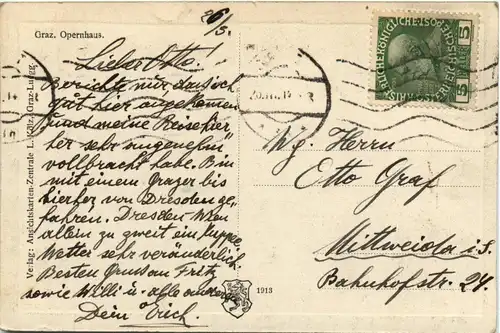 Graz. Opernhaus.
26/5.
Lieber Otto!
Berichte nur das ich
gut hier angekommen
und meine Reise hier
her sehr angenehm
vollbracht habe. Bin
mit einem Grazer bis
hierher von Dresden ge-
fahren. Dresden-Wien
allein zu zweit ein Kuppee.
Wetter sehr veränderlich.
Besten Gruss an Fritz
sowie Willi u. alle anderen
Dein Erich.
Verlag: Ansichtskarten-Zentrale L. Graz-Luegg.
1913
KAIS. KÖNIGLICHE ÖSTERREICHISCHE POST
5 5
Herrn
Otto Graf
Mittweida i. S.
Bahnhofstr. 24.